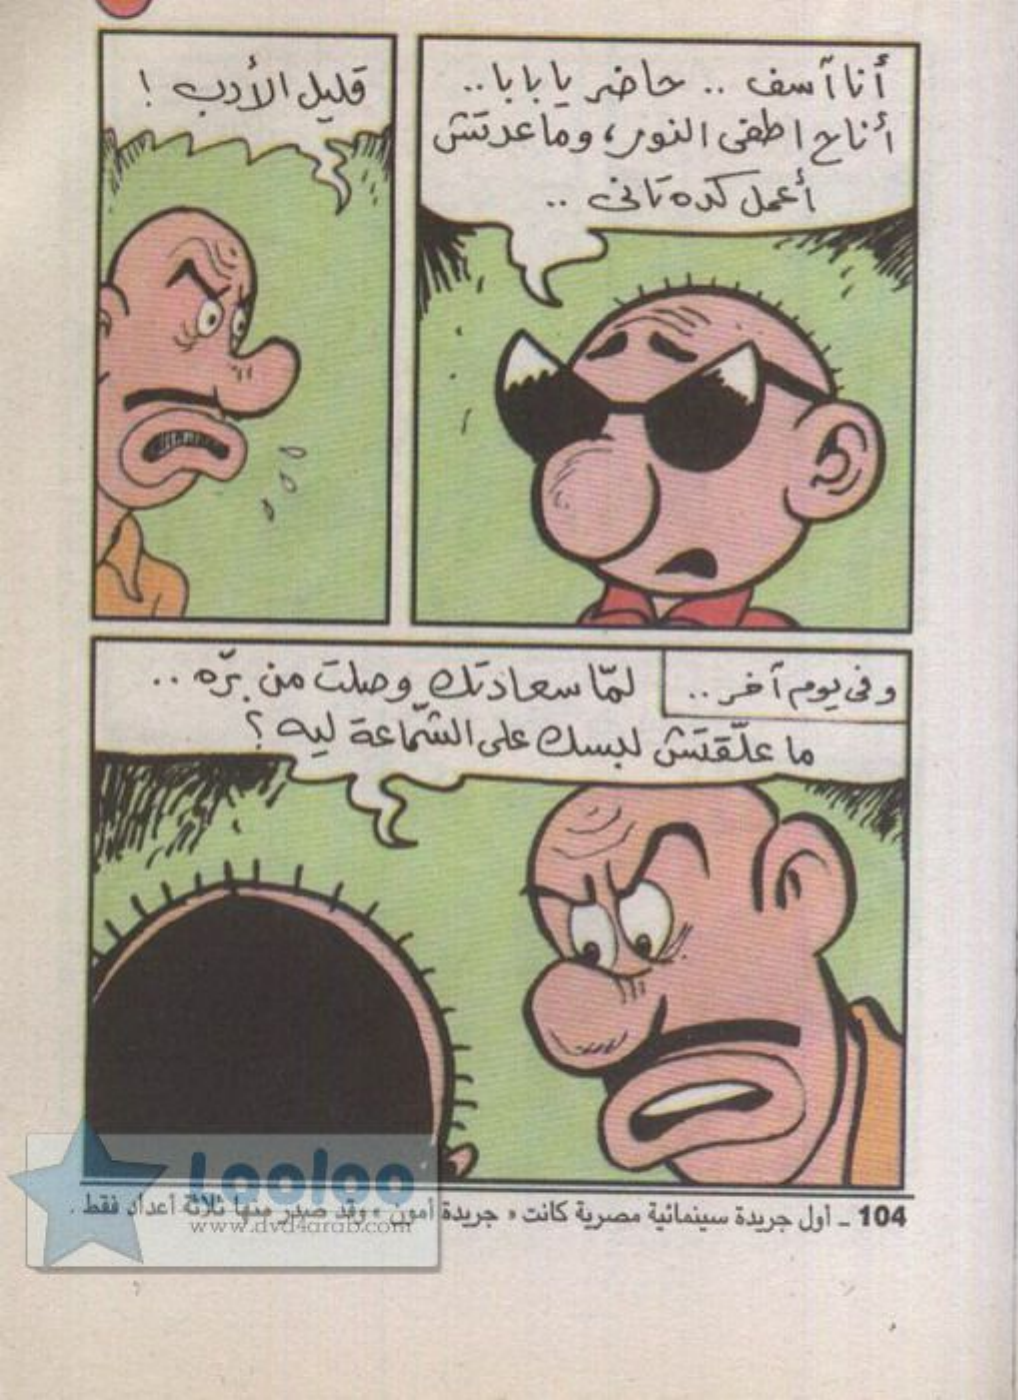 أنا آسف .. حاضر يا بابا ..
أناح اطفى النور، وما عدتش
أعمل كده تانى ..
قليل الأدب !
وفى يوم آخر ..
لمّا سعادتك وصلت من برّه ..
ما علّقتش لبسك على الشمّاعة ليه ؟
104 ـ أول جريدة سينمائية مصرية كانت « جريدة أمون » وقد صدر منها ثلاثة أعداد فقط .
Looloo
www.dvd4arab.com